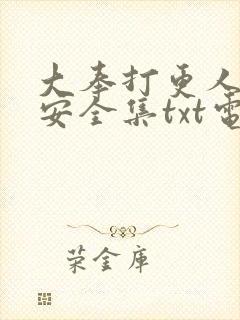 大奉打更人
安全集txt電
荣金库